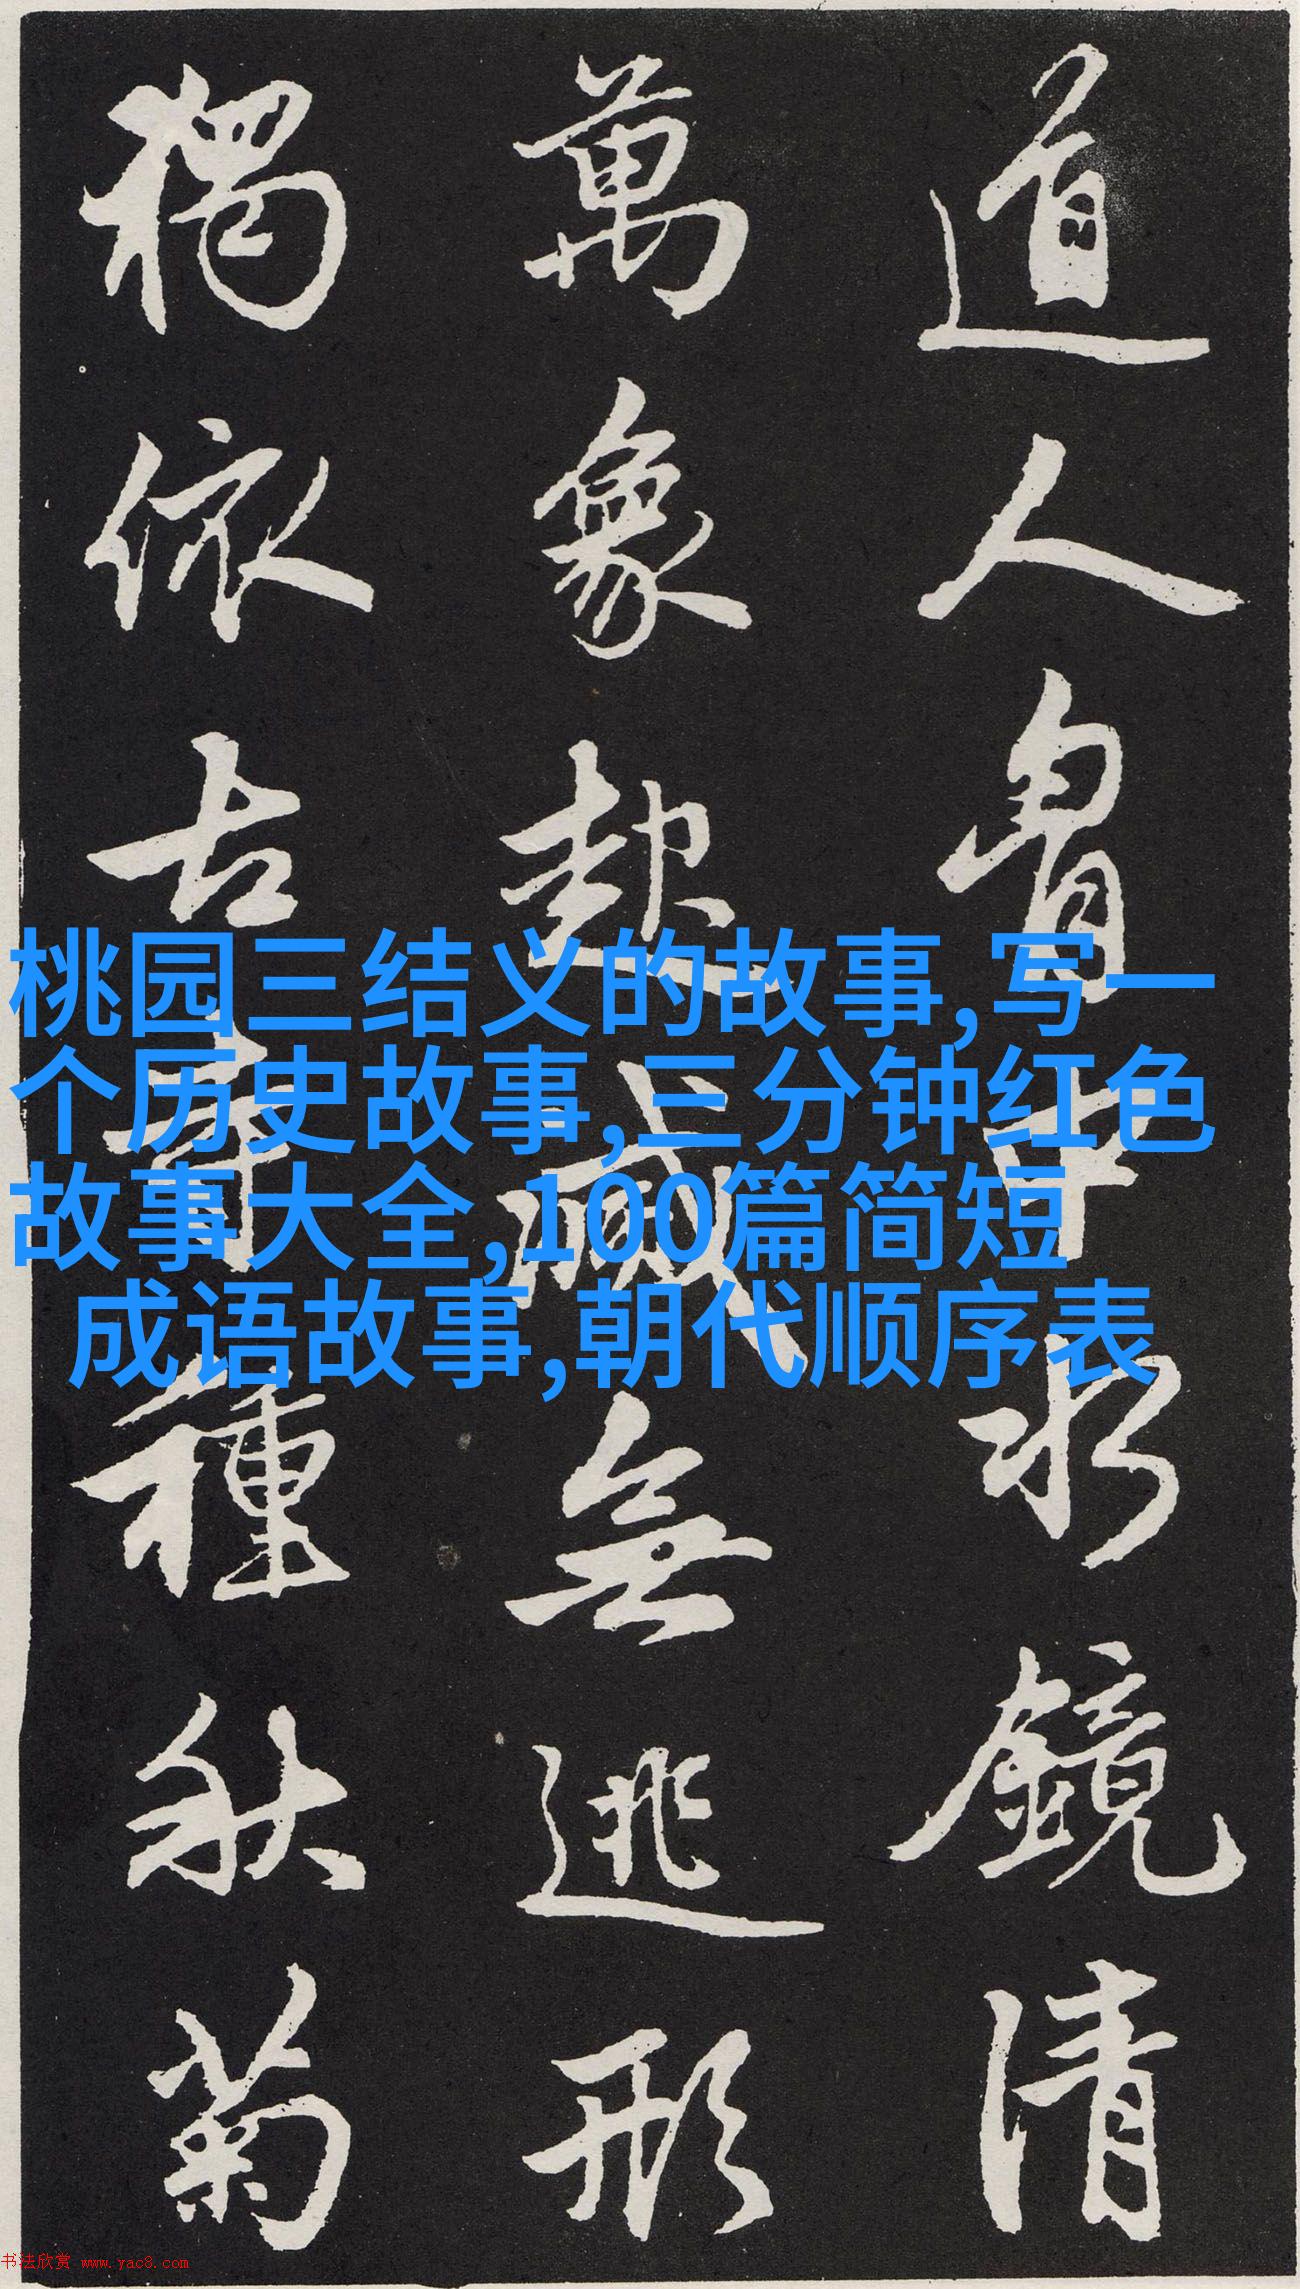 道人胷中水鏡清
萬象起滅無逃形
獨依古寺種秋菊
桃园三结义的故事,写一
个历史故事,三分钟红色
故事大全,100篇简短
成语故事,朝代顺序表
书法欣赏 www.yac8.com